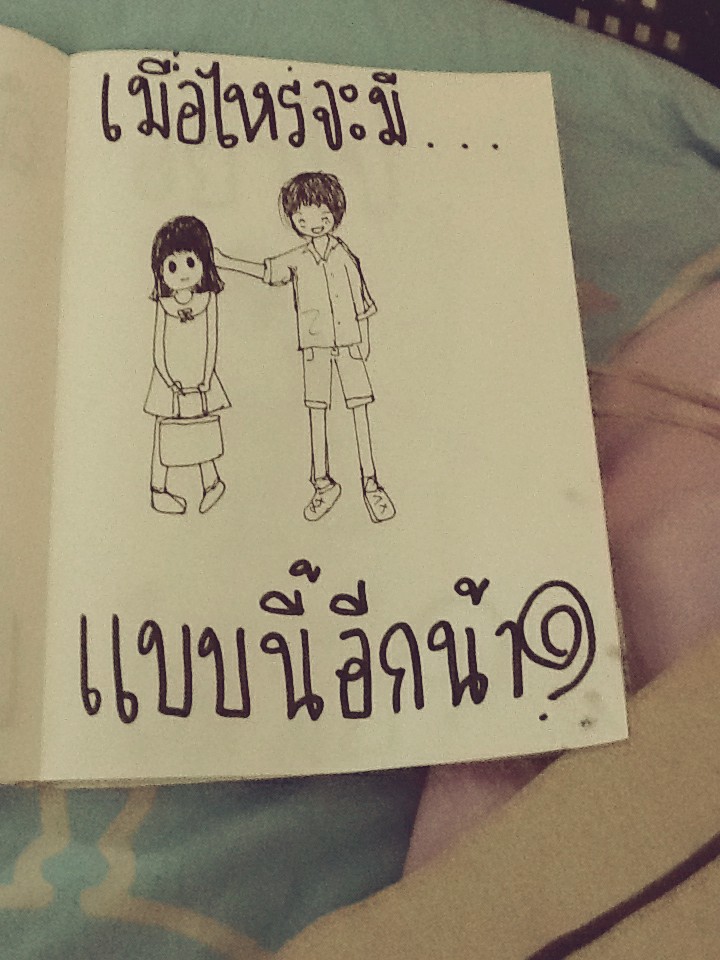 เมื่อไหร่จะมี...
แบบนี้อีกน้า?